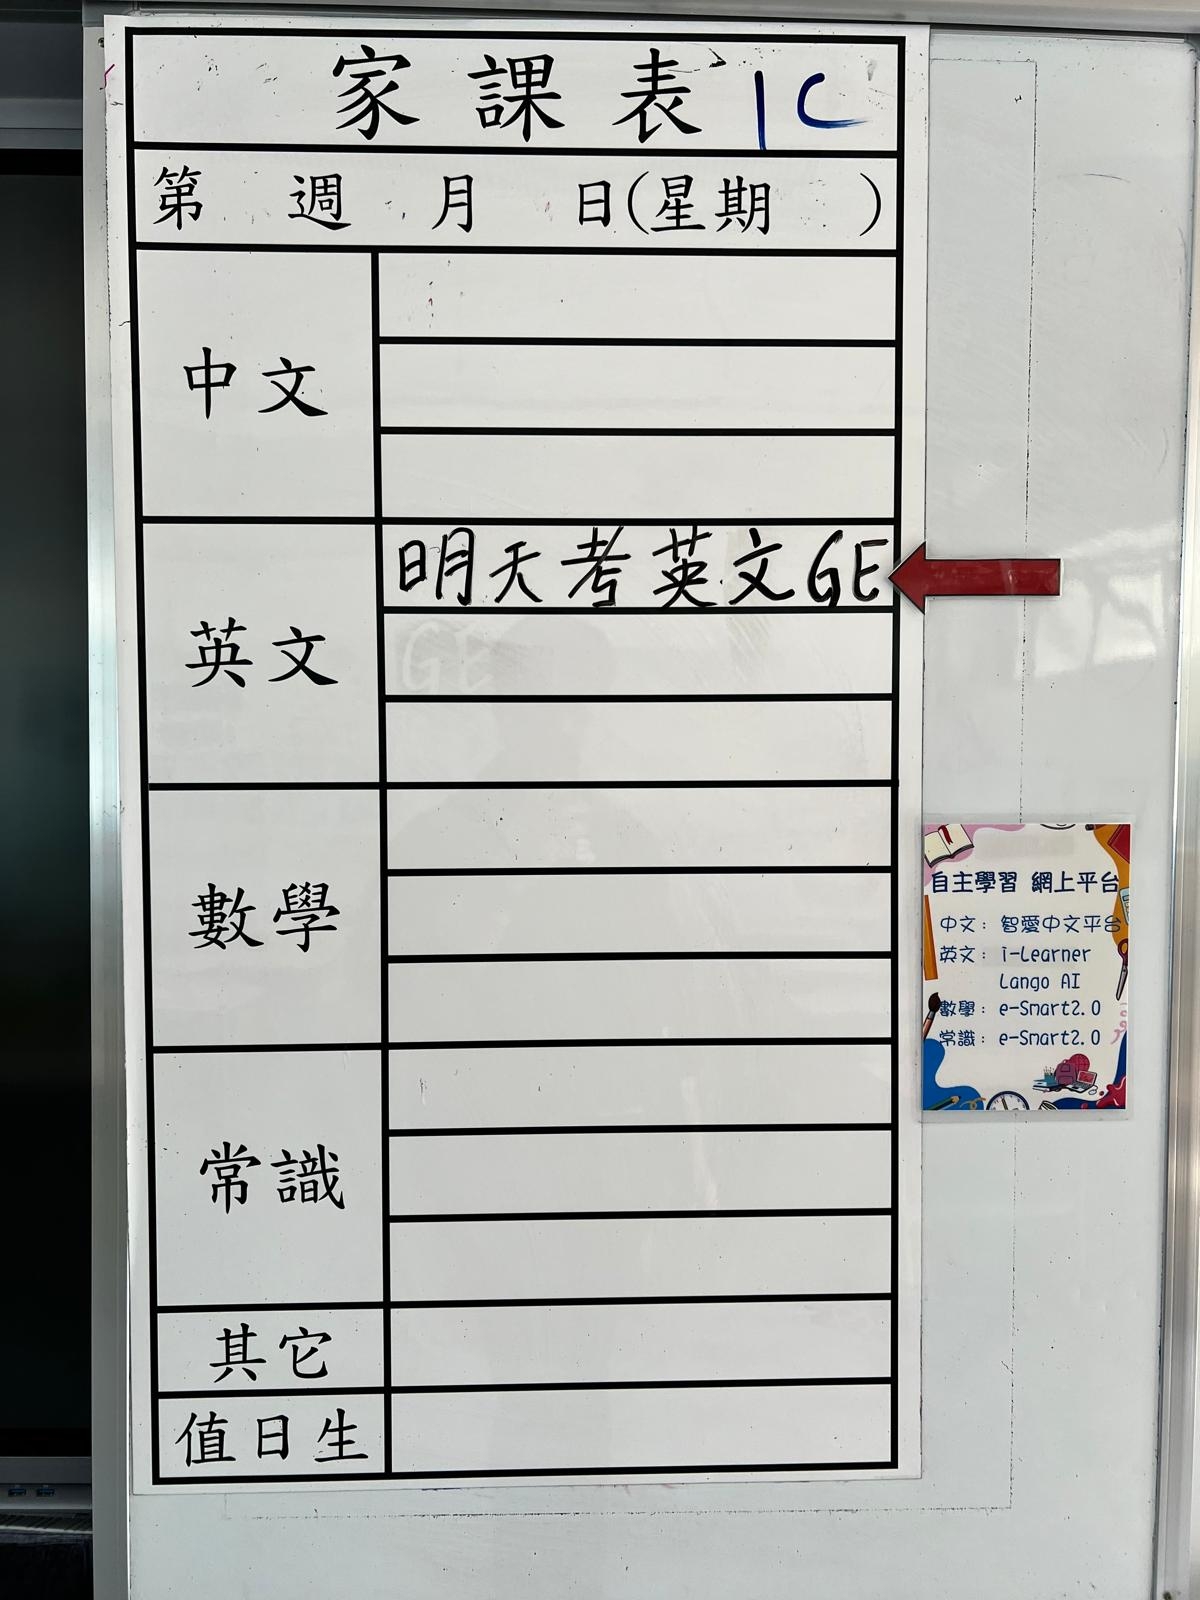 家課表 1C
第 週 月 日(星期 )
中文
英文
明天考英文GE
GE
數學
常識
其它
值日生
自主學習 網上平台
中文: 智愛中文平台
英文: i-Learner
Lango AI
數學: e-Smart2.0
常識: e-Smart2.0